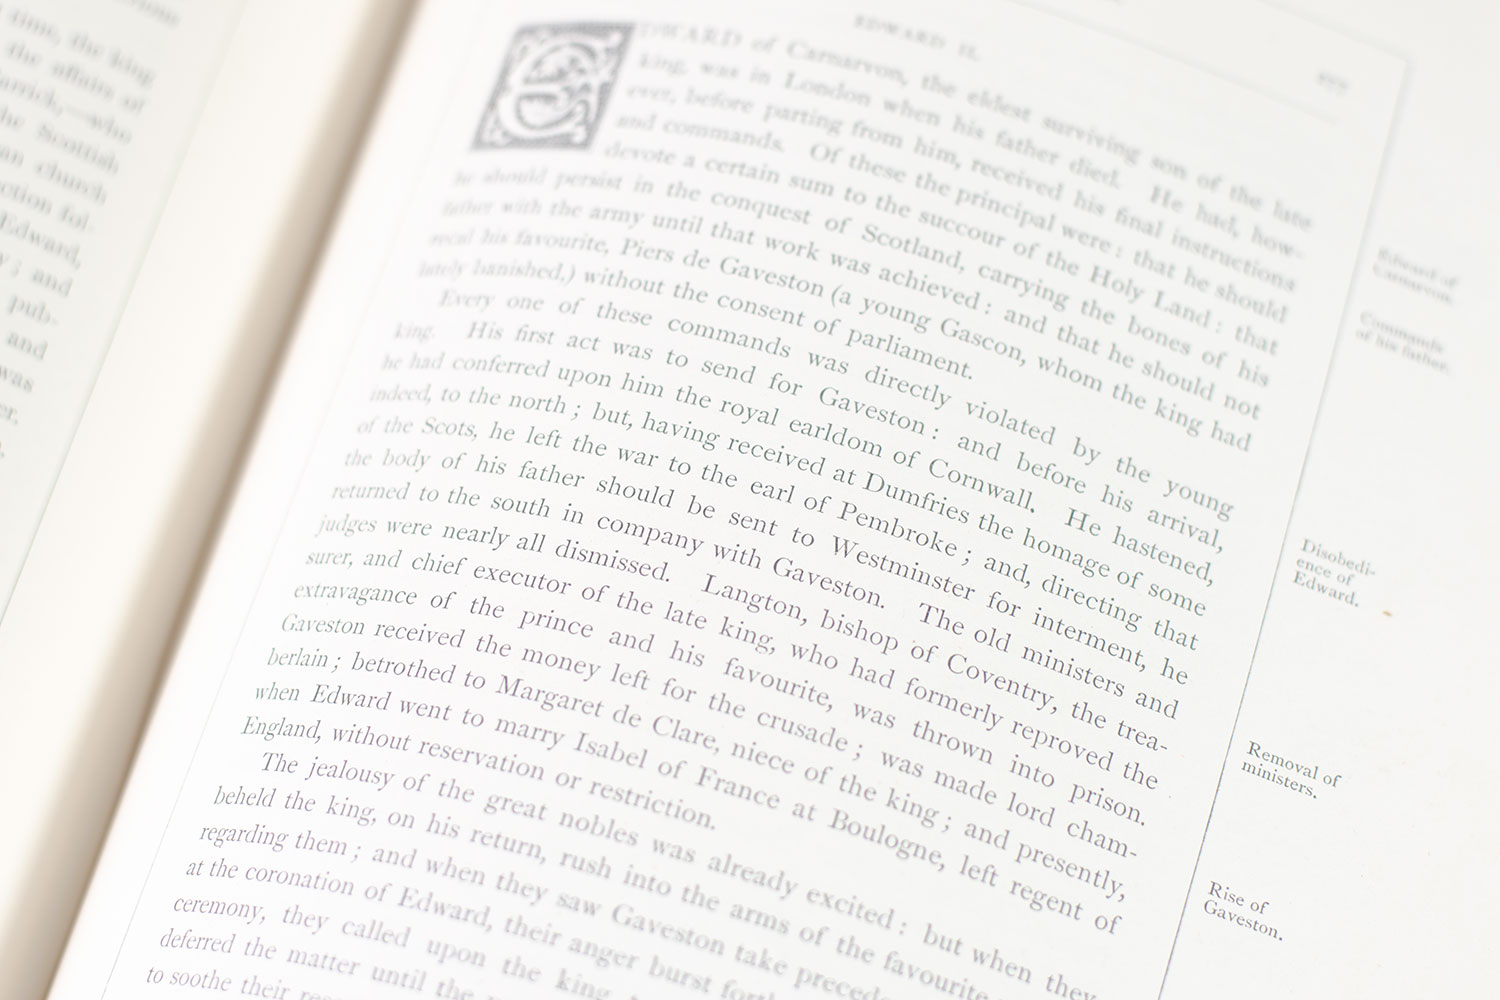 time, the king
the affairs of
who
the Scottish
church
Edward,
; and
pub-
and
was
EDWARD II.
EDWARD of Carnarvon, the eldest surviving son of the late
king, was in London when his father died. He had, how-
ever, before parting from him, received his final instructions
and commands. Of these the principal were: that he should
devote a certain sum to the succour of the Holy Land: that
he should persist in the conquest of Scotland, carrying the bones of his
father with the army until that work was achieved: and that he should not
recal his favourite, Piers de Gaveston (a young Gascon, whom the king had
lately banished,) without the consent of parliament.
Every one of these commands was directly violated by the young
king. His first act was to send for Gaveston: and before his arrival,
he had conferred upon him the royal earldom of Cornwall. He hastened,
indeed, to the north; but, having received at Dumfries the homage of some
of the Scots, he left the war to the earl of Pembroke; and, directing that
the body of his father should be sent to Westminster for interment, he
returned to the south in company with Gaveston. The old ministers and
judges were nearly all dismissed. Langton, bishop of Coventry, the trea-
surer, and chief executor of the late king, who had formerly reproved the
extravagance of the prince and his favourite, was thrown into prison.
Gaveston received the money left for the crusade; was made lord cham-
berlain; betrothed to Margaret de Clare, niece of the king; and presently,
when Edward went to marry Isabel of France at Boulogne, left regent of
England, without reservation or restriction.
The jealousy of the great nobles was already excited: but when they
beheld the king, on his return, rush into the arms of the favourite
regarding them; and when they saw Gaveston take
at the coronation of Edward, their anger burst
ceremony, they called upon the king
deferred the matter until the
to soothe their
Edward of
Carnarvon.
Commands
of his father.
Disobedi-
ence of
Edward.
Removal of
ministers.
Rise of
Gaveston.